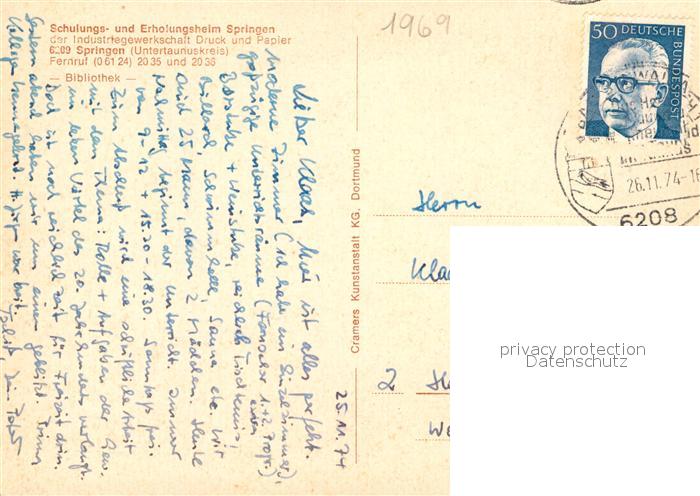 Schulungs- und Erholungsheim Springen
der Industriegewerkschaft Druck und Papier
6209 Springen (Untertaunuskreis)
Fernruf (0 61 24) 20 35 und 20 36
— Bibliothek —
1969
50 DEUTSCHE BUNDESPOST
26.11.74-18
6208
Lieber Klaus, hier ist alles perfekt.
Moderne Zimmer (ich habe ein Einzelzimmer),
großzügige Unterrichtsräume (Fernseher 1+2. Progr.)
Bierstube + Weinstube, reichlich Tischtennis,
Billard, Schwimmhalle, Sauna etc. Wir
sind 25 Mann, davon 2 Mädchen. Heute
Nachmittag beginnt der Unterricht. Immer
von 9-12 + 15.30-18.30. Samstags frei.
Zum wird eine schriftliche Arbeit
mit dem Thema: Rolle + Aufgaben der Gew.
im letzten Viertel des 20. Jahrhunderts verlangt.
Doch ist noch reichlich Zeit für Freizeit drin.
Gestern abend haben wir uns einen
Kollegen
25.11.74
Cramers Kunstanstalt KG. Dortmund
Herrn
Kla
2 H
We
privacy protection
Datenschutz